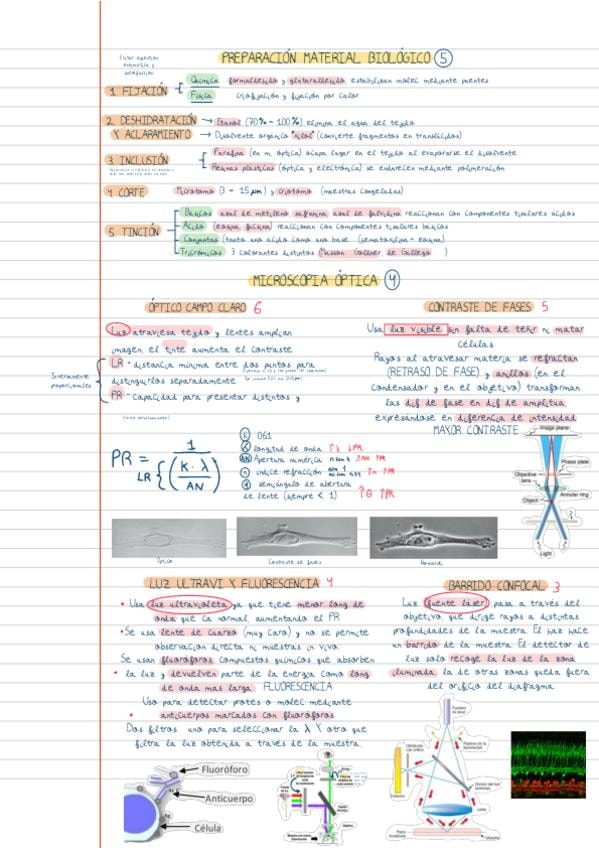 PREPARACIÓN MATERIAL BIOLÓGICO 5
1. FIJACIÓN
Química formaldehido y glutaraldehido estabilizan molec mediante puentes
Física criofijación y fijación por calor
2. DESHIDRATACIÓN → Etanol (70% - 100%) elimina el agua del tejido
Y ACLARAMIENTO → Disolvente orgánico "xilol" (convierte fragmentos en translúcidos)
3. INCLUSIÓN
Parafina (en m. óptica) ocupa lugar en el tejido al evaporarse el disolvente
Resinas plasticas (óptica y electrónica) se endurecen mediante polimeración
4 CORTE Microtomo (3 - 15 µm) y criotomo (muestras congeladas)
5. TINCIÓN
Básicos azul de metileno, safranina, azul de reaccionan con componentes tisulares ácidos
Ácido (eosina, fucsina) reaccionan con componentes tisulares básicos
Conjuntas (tanto uno ácido como una base (hematoxilina - eosina)
Tricrómicos 3 colorantes distintos (Masson Goldner, de Gallego )
MICROSCOPIA ÓPTICA 4
ÓPTICO CAMPO CLARO 6
Luz atraviesa tejido y lentes amplian
imagen, el tinte aumenta el contraste
LR - distancia mínima entre dos puntos para
distinguirlos separadamente
PR - Capacidad para presentar distintos y
Inversamente
proporcionales
PR = 1
LR { ( K · λ / AN )
K 061
λ longitud de onda ↑λ ↓PR
AN Apertura numérica ↑AN ↑PR
n indice refracción ↑n ↑PR
θ semiángulo de abertura ↑θ ↑PR
de lente (siempre < 1)
CONTRASTE DE FASES 5
Usa luz visible sin falta de teñir ni matar
células
Rayos al atravesar materia se refractan
(RETRASO DE FASE) y anillos (en el
condensador y en el objetivo) transforman
las dif de fase en dif de amplitud
expresandose en diferencia de intensidad
MAYOR CONTRASTE
Image plane
Phase plate
Objective
lens
Annular ring
Object
Light
Óptico
Contraste de fases
Nomarski
LUZ ULTRAVI Y FLUORESCENCIA 4
• Usa luz ultravioleta ya que tiene menor long de
onda que la normal, aumentando el PR
• Se usa lente de cuarzo (muy caro) y no se permite
observación directa ni muestras in vivo
Se usan fluoróforos compuestos químicos que absorben
• la luz y devuelven parte de la energía como long
de onda mas larga FLUORESCENCIA
Uso para detectar protes o molec mediante
• anticuerpos marcados con fluoroforos
Dos filtros uno para seleccionar la λ Y otro que
filtra la luz obtenida a través de la muestra.
Fluoróforo
Anticuerpo
Célula
BARRIDO CONFOCAL 3
Luz (fuente láser) pasa a través del
objetivo, que dirige rayos a distintas
profundidades de la muestra. El haz hace
un barrido de la muestra. El detector de
luz solo recoge la luz de la zona
iluminada, la de otras zonas queda fuera
del orificio del diafragma.